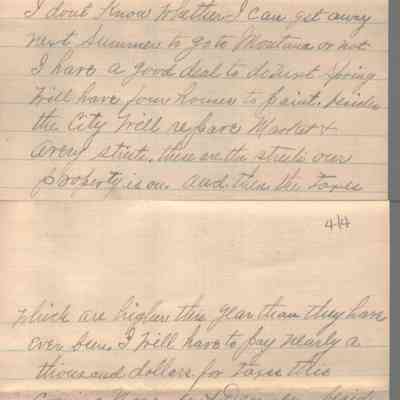 I dont know whether I can get away
next summer to go to Montana or not
I have a good deal to do next spring
Will have four houses to paint. besides
the City Will repave Market +
Avery streets, these are the streets our
property is on. And then the Taxes
4/4
which are higher this year than they have
ever been. I Will have to pay nearly a
thousand dollars for Taxes this